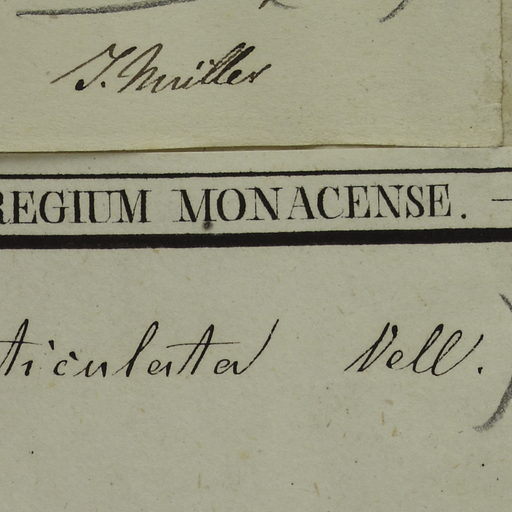 J. Müller
REGIUM MONACENSE. —
ticulata Vell.)